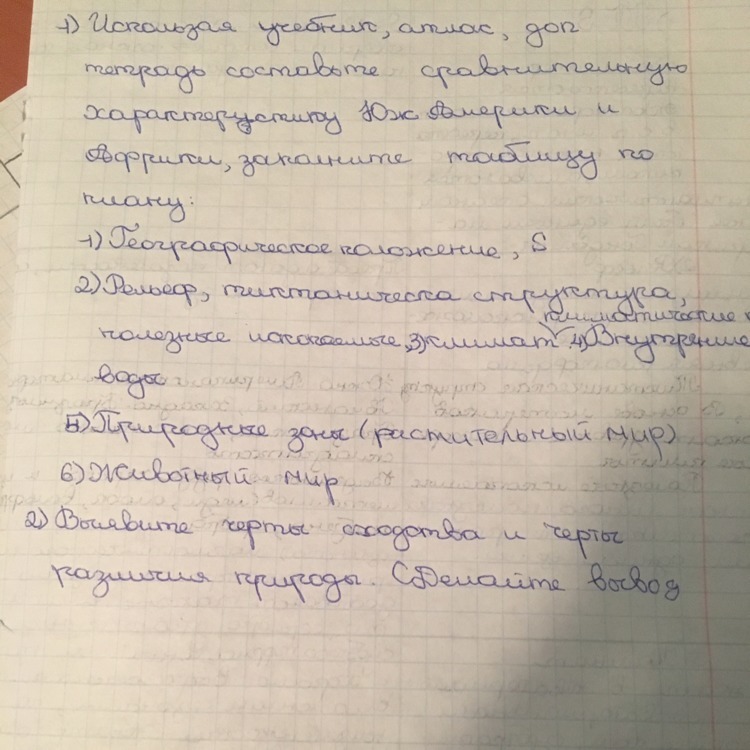 1) Использая учебник, атлас, доп
тетрадь составьте сравнительную
характеристику Юж Америки и
Африки, заполните таблицу по
плану:
1) Географическое положение, S
2) Рельеф, тиктаническа структура,
климатические п
полезные ископаемые, 3) климат 4) Внутрение
воды
5) Природные зоны (растительный мир)
6) Животный мир
2) Выявите черты сходства и черты
различия природы. Сделайте вывод